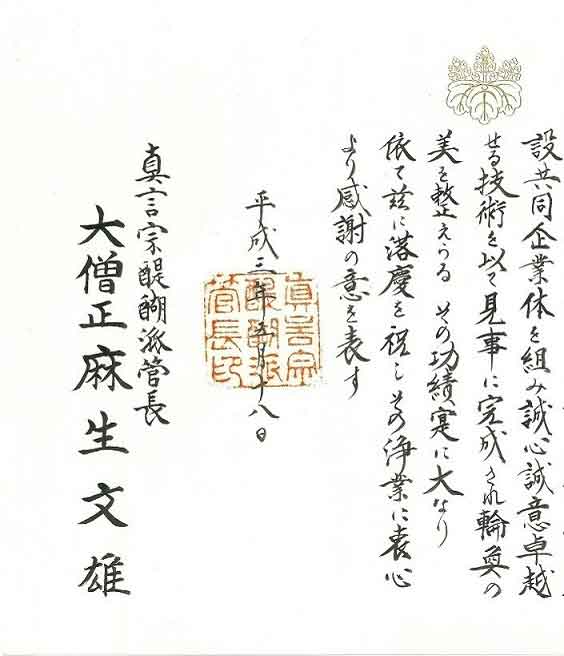 設共同企業体を組み誠心誠意卓越
せる技術を以て見事に完成され輪奐の
美を整えらる その功績寔に大なり
依て茲に落慶を祝しその浄業に衷心
より感謝の意を表す
平成三年五月十八日
真言宗
醍醐派
管長印
真言宗醍醐派管長
大僧正麻生文雄